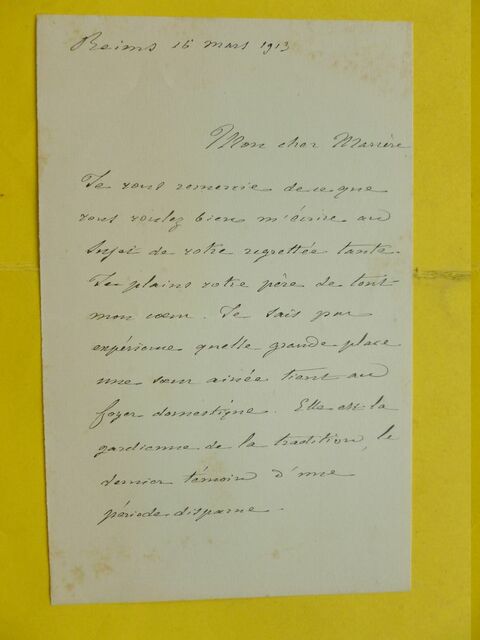 Reims 16 mars 1913
Mon cher
Je vous remercie de ce que
vous voulez bien m'écrire au
sujet de votre regrettée tante.
Je plains votre père de tout
mon cœur. Je sais par
expérience quelle grande place
une sœur aînée tient au
foyer domestique. Elle est la
gardienne de la tradition, le
dernier témoin d'une
période disparue.